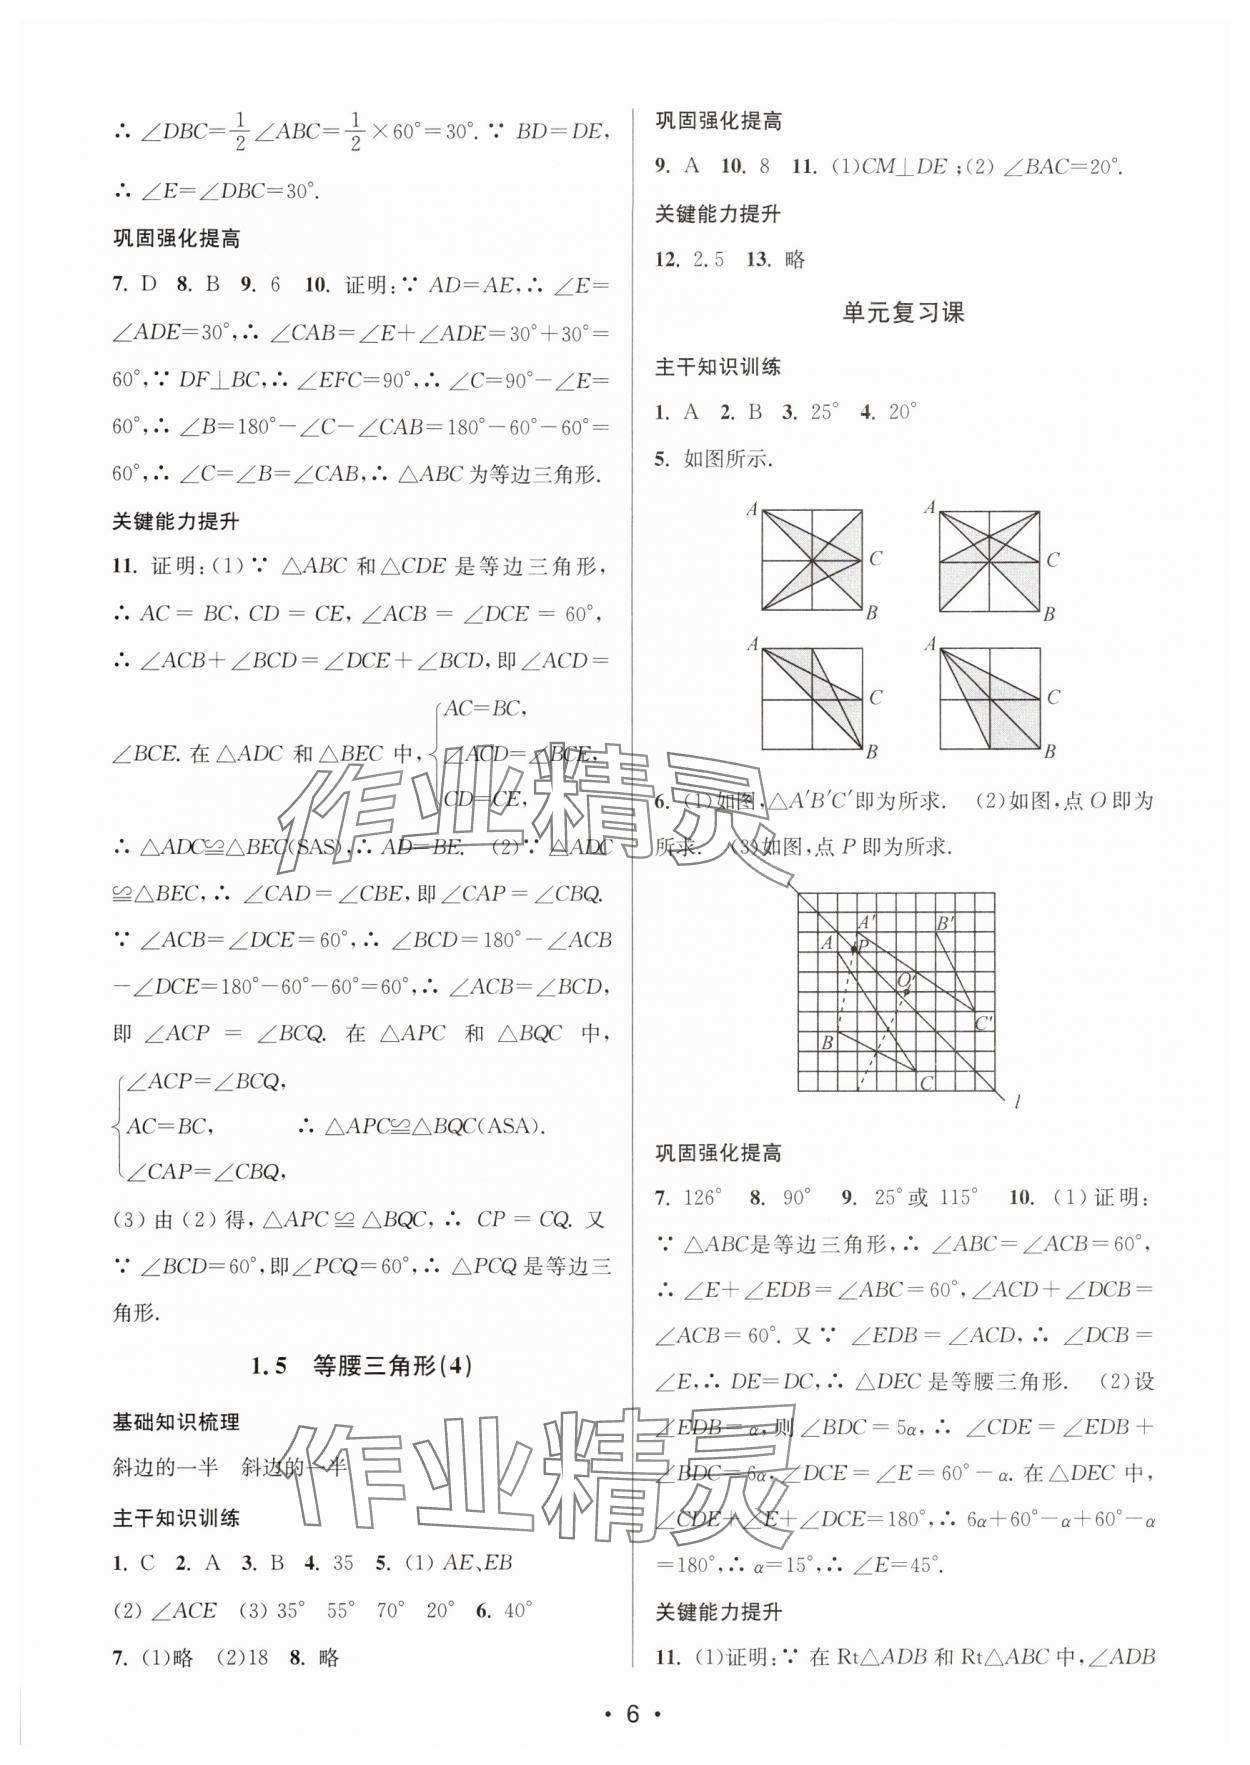 ∴ ∠DBC=1/2∠ABC=1/2×60°=30°.∵ BD=DE,
∴ ∠E=∠DBC=30°.
巩固强化提高
7. D 8. B 9. 6 10. 证明:∵ AD=AE,∴ ∠E=
∠ADE=30°,∴ ∠CAB=∠E+∠ADE=30°+30°=
60°,∵ DF⊥BC,∴ ∠EFC=90°,∴ ∠C=90°-∠E=
60°,∴ ∠B=180°-∠C-∠CAB=180°-60°-60°=
60°,∴ ∠C=∠B=∠CAB,∴ △ABC为等边三角形.
关键能力提升
11. 证明:(1)∵ △ABC和△CDE是等边三角形,
∴ AC=BC,CD=CE,∠ACB=∠DCE=60°,
∴ ∠ACB+∠BCD=∠DCE+∠BCD,即∠ACD=
∠BCE.在△ADC和△BEC中,{AC=BC,
∠ACD=∠BCE,
CD=CE,
∴ △ADC≌△BEC(SAS),∴ AD=BE. (2)∵ △ADC
≌△BEC,∴ ∠CAD=∠CBE,即∠CAP=∠CBQ.
∵ ∠ACB=∠DCE=60°,∴ ∠BCD=180°-∠ACB
-∠DCE=180°-60°-60°=60°,∴ ∠ACB=∠BCD,
即∠ACP=∠BCQ.在△APC和△BQC中,
{∠ACP=∠BCQ,
AC=BC, ∴ △APC≌△BQC(ASA).
∠CAP=∠CBQ,
(3)由(2)得,△APC≌△BQC,∴ CP=CQ.又
∵ ∠BCD=60°,即∠PCQ=60°,∴ △PCQ是等边三
角形.
1.5 等腰三角形(4)
基础知识梳理
斜边的一半 斜边的一半
主干知识训练
1. C 2. A 3. B 4. 35 5. (1)AE、EB
(2)∠ACE (3)35° 55° 70° 20° 6. 40°
7. (1)略 (2)18 8. 略
巩固强化提高
9. A 10. 8 11. (1)CM⊥DE;(2)∠BAC=20°.
关键能力提升
12. 2.5 13. 略
单元复习课
主干知识训练
1. A 2. B 3. 25° 4. 20°
5. 如图所示.
A C B
A C B
A C B
A C B
6. (1)如图,△A′B′C′即为所求. (2)如图,点O即为
所求. (3)如图,点P即为所求.
A′ B′
A P
O′
C′
B
C
l
巩固强化提高
7. 126° 8. 90° 9. 25°或115° 10. (1)证明:
∵ △ABC是等边三角形,∴ ∠ABC=∠ACB=60°,
∴ ∠E+∠EDB=∠ABC=60°,∠ACD+∠DCB=
∠ACB=60°.又∵ ∠EDB=∠ACD,∴ ∠DCB=
∠E,∴ DE=DC,∴ △DEC是等腰三角形. (2)设
∠EDB=α,则∠BDC=5α,∴ ∠CDE=∠EDB+
∠BDC=6α,∠DCE=∠E=60°-α.在△DEC中,
∠CDE+∠E+∠DCE=180°,∴ 6α+60°-α+60°-α
=180°,∴ α=15°,∴ ∠E=45°.
关键能力提升
11. (1)证明:∵ 在Rt△ADB和Rt△ABC中,∠ADB
作业精灵
作业精灵
• 6 •